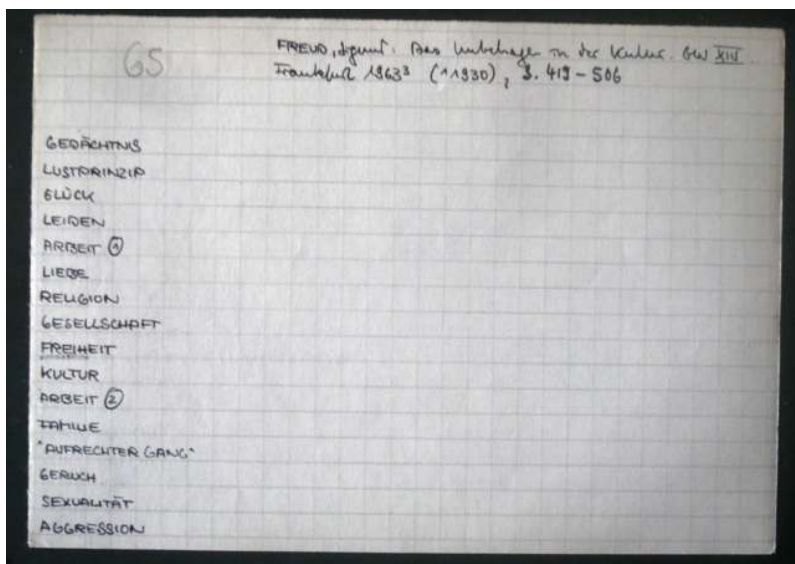 GS
FREUD, Sigmund. Das Unbehagen in der Kultur. GW XIV.
Frankfurt 1963³ (¹1930), S. 419 - 506
GEDÄCHTNIS
LUSTPRINZIP
GLÜCK
LEIDEN
ARBEIT ①
LIEBE
RELIGION
GESELLSCHAFT
FREIHEIT
KULTUR
ARBEIT ②
FAMILIE
"AUFRECHTER GANG"
GERUCH
SEXUALITÄT
AGGRESSION